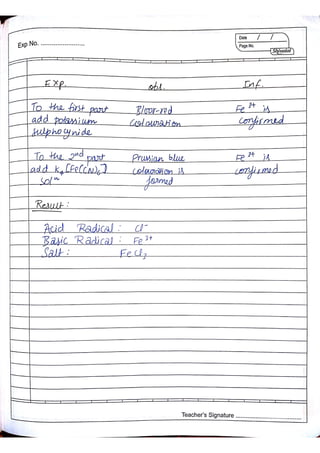 Date / /
Exp No.
Page No.
Exp. obs. Inf.
To the first part Blood-red Fe3+ is
add potassium colouration confirmed
sulphocynide
To the 2nd part Prussian blue Fe3+ is
add K4[Fe(CN)6] colouration is confirmed
soln formed
Result :
Acid Radical : Cl-
Basic Radical : Fe3+
Salt : FeCl3
Teacher's Signature